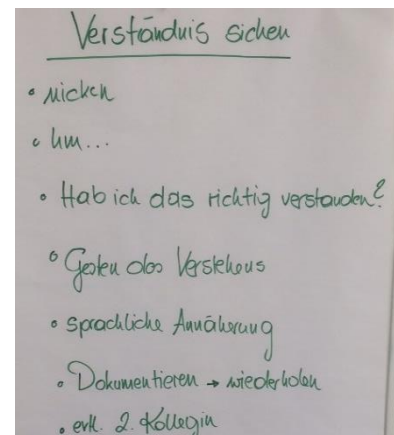 Verständnis sichern
• nicken
• hm...
• Hab ich das richtig verstanden?
• Gesten des Verstehens
• sprachliche Annäherung
• Dokumentieren → wiederholen
• evtl. 2. Kollegin